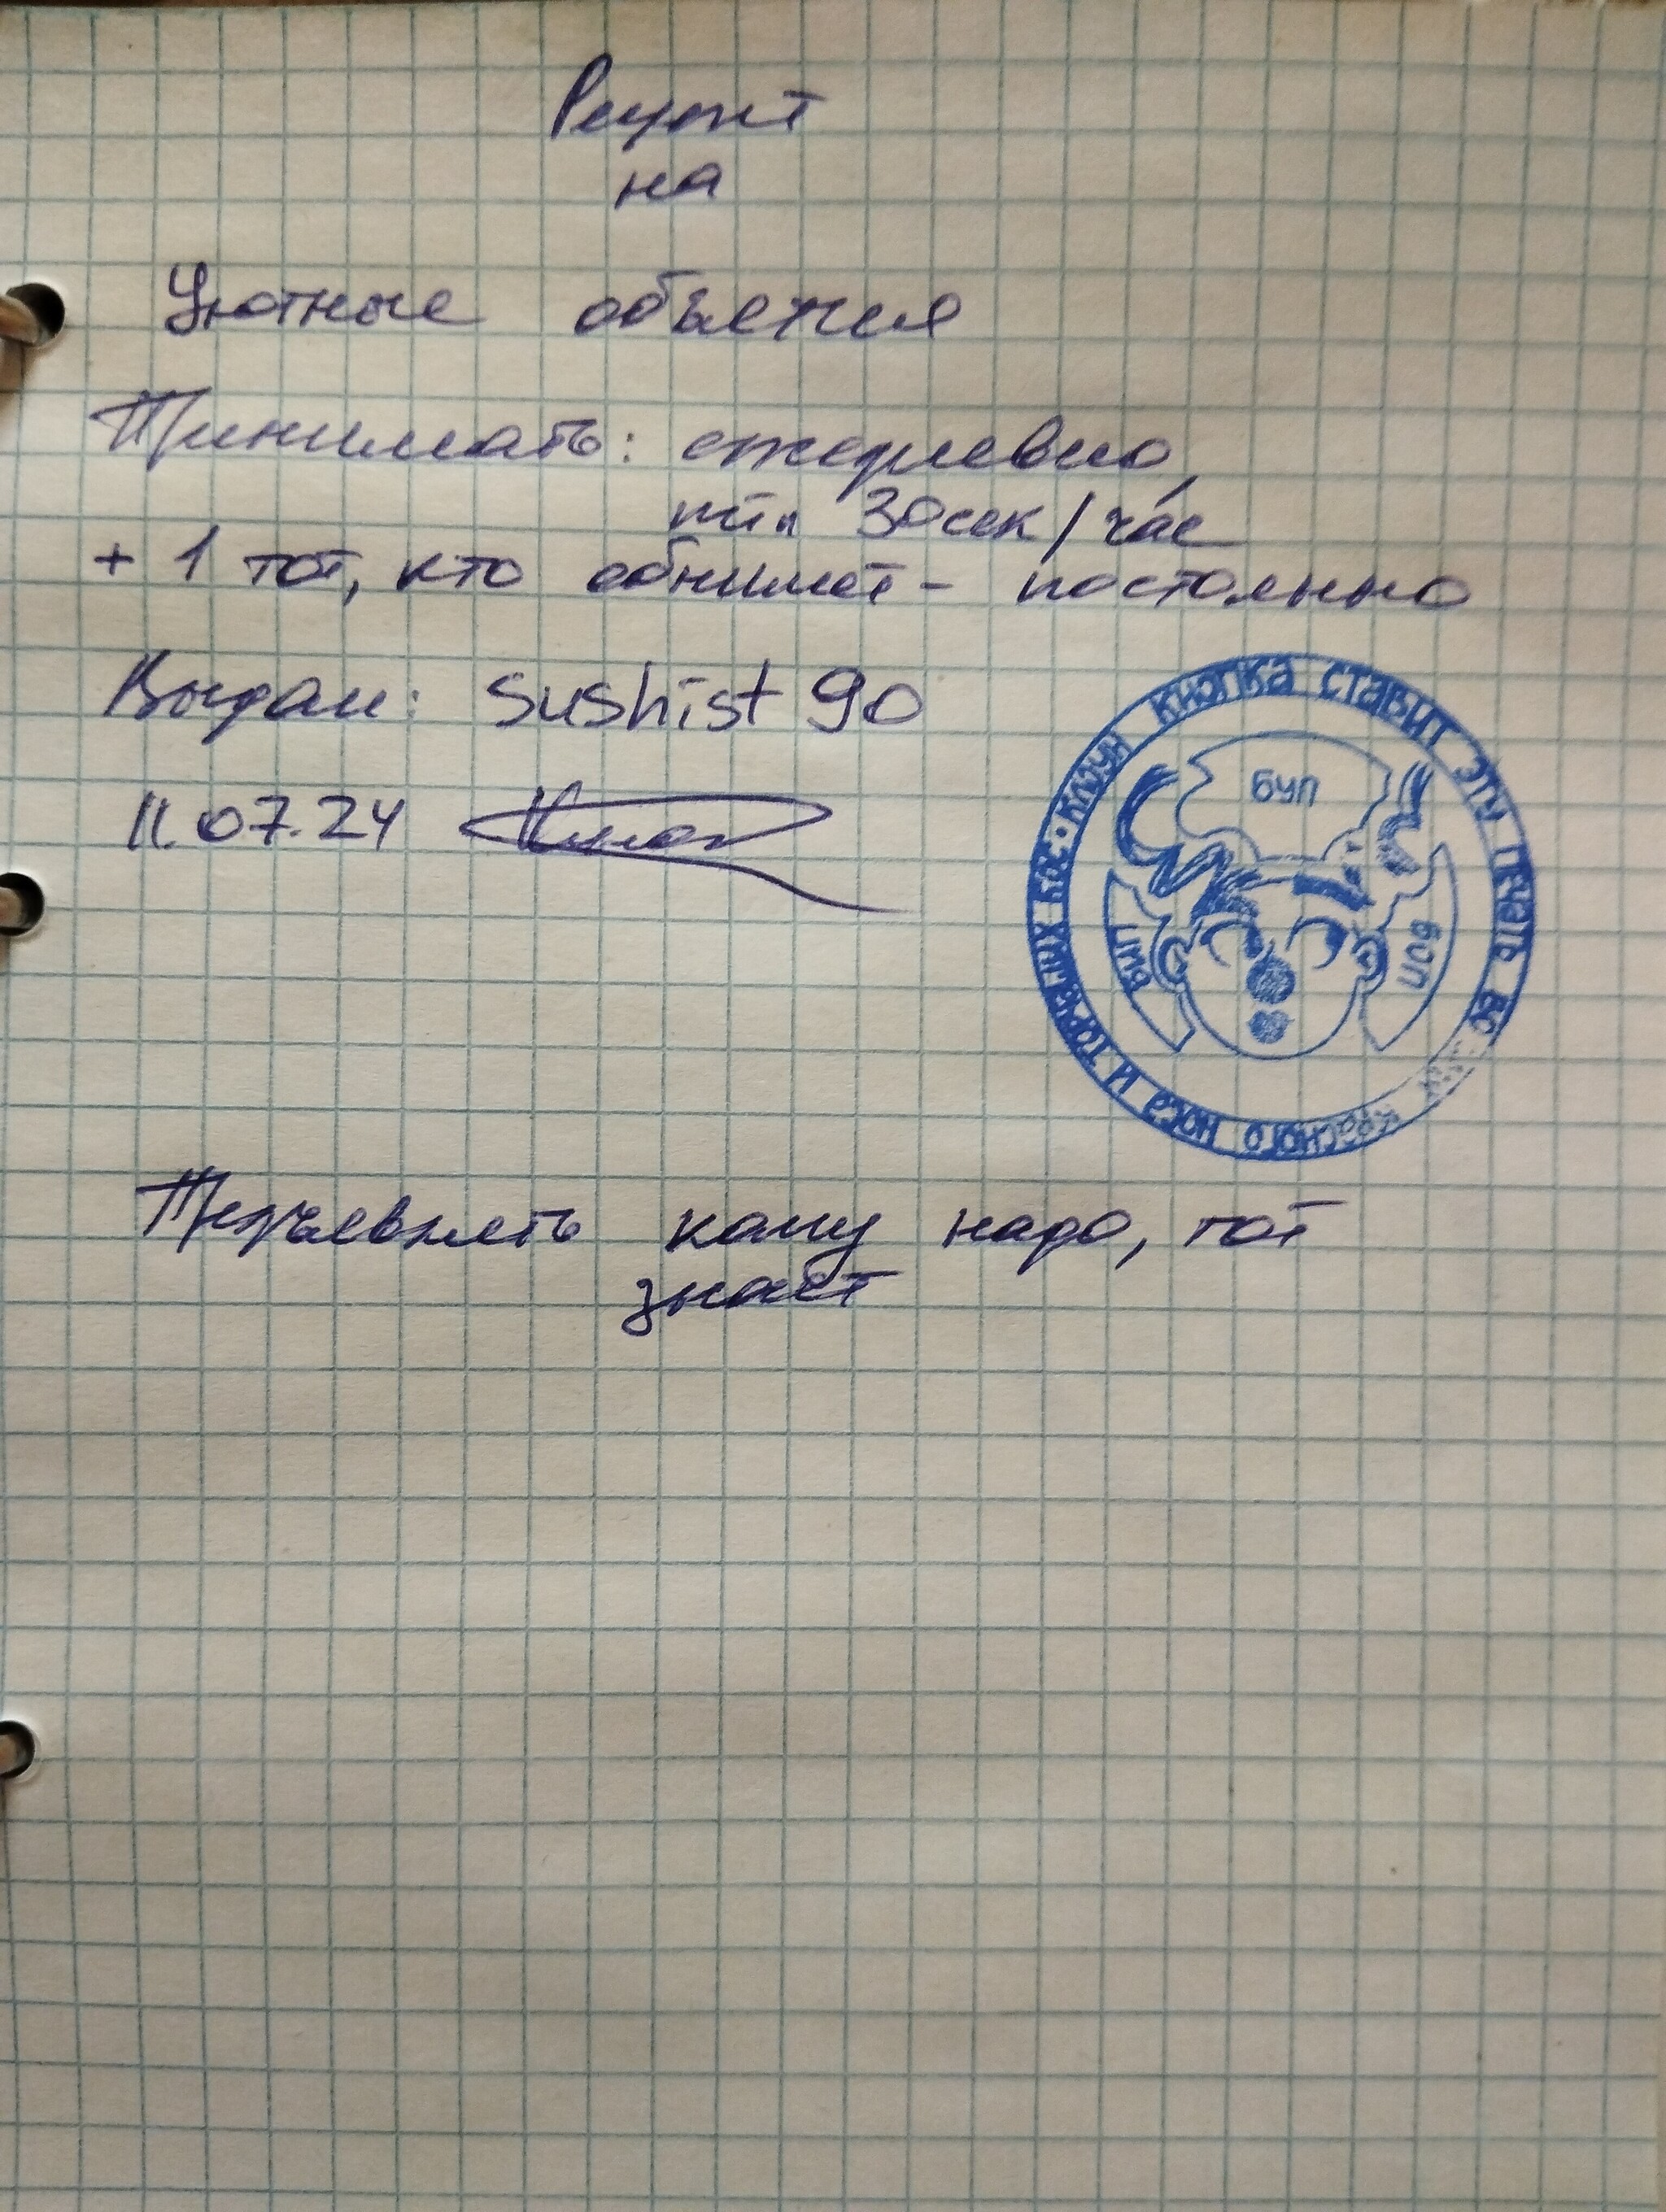 Рецепт
на
Уютные объятия
Принимать: ежедневно,
min 30 сек/час
+ 1 тот, кто обнимет - постоянно
Выдан: sushist 90
11.07.24
КЛОУН КНОПКА СТАВИТ ЭТУ ПЕЧАТЬ ВО красного носа и торчащих кос •
БУП
БИП
БОП
Предъявлять кому надо, тот
знает